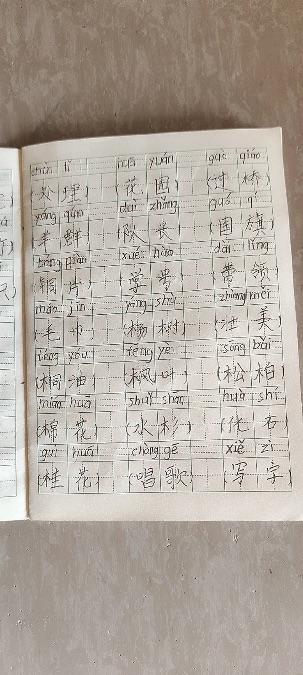 chǔ lǐ huā yuán guò qiáo
(处理) (花园) (过桥)
yáng qún duì zhǎng guó qí
(羊群) (队长) (国旗)
tóng piàn xué hào dài lǐng
(铜片) (学号) (带领)
máo jīn yáng shù zhuàng měi
(毛巾) (杨树) (壮美)
tóng yóu fēng yè sōng bǎi
(桐油) (枫叶) (松柏)
mián huā shuǐ shān huà shí
(棉花) (水杉) (化石)
guì huā chàng gē xiě zì
(桂花) (唱歌) (写字)